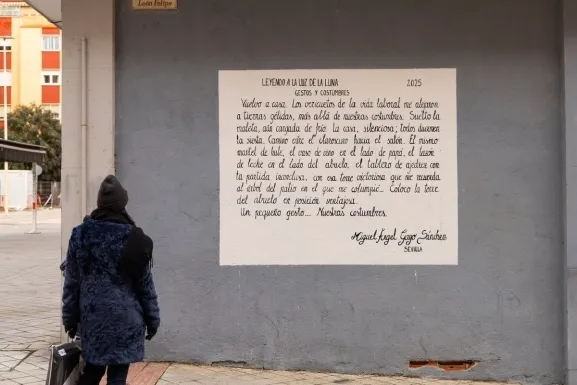 León Felipe
LEYENDO A LA LUZ DE LA LUNA 2025
GESTOS Y COSTUMBRES
Vuelvo a casa. Los vericuetos de la vida laboral me alejaron
a tierras gélidas, más allá de nuestras costumbres. Suelto la
maleta, aún cargada de frío. La casa, silenciosa; todos duermen
la siesta. Camino entre el claroscuro hacia el salón. El mismo
mantel de hule, el vaso de vino en el lado de papá, el tazón
de leche en el lado del abuelo, el tablero de ajedrez con
la partida inconclusa, con esa torre victoriosa que me recuerda
al árbol del patio en el que me columpié. Coloco la torre
del abuelo en posición ventajosa.
Un pequeño gesto... Nuestras costumbres.
Miguel Ángel Gayo Sánchez
SEVILLA